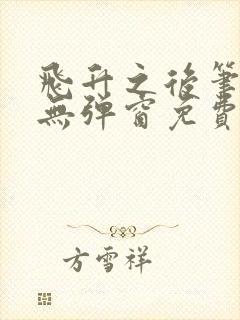 飛升之後筆
無彈窗免費
方雪祥